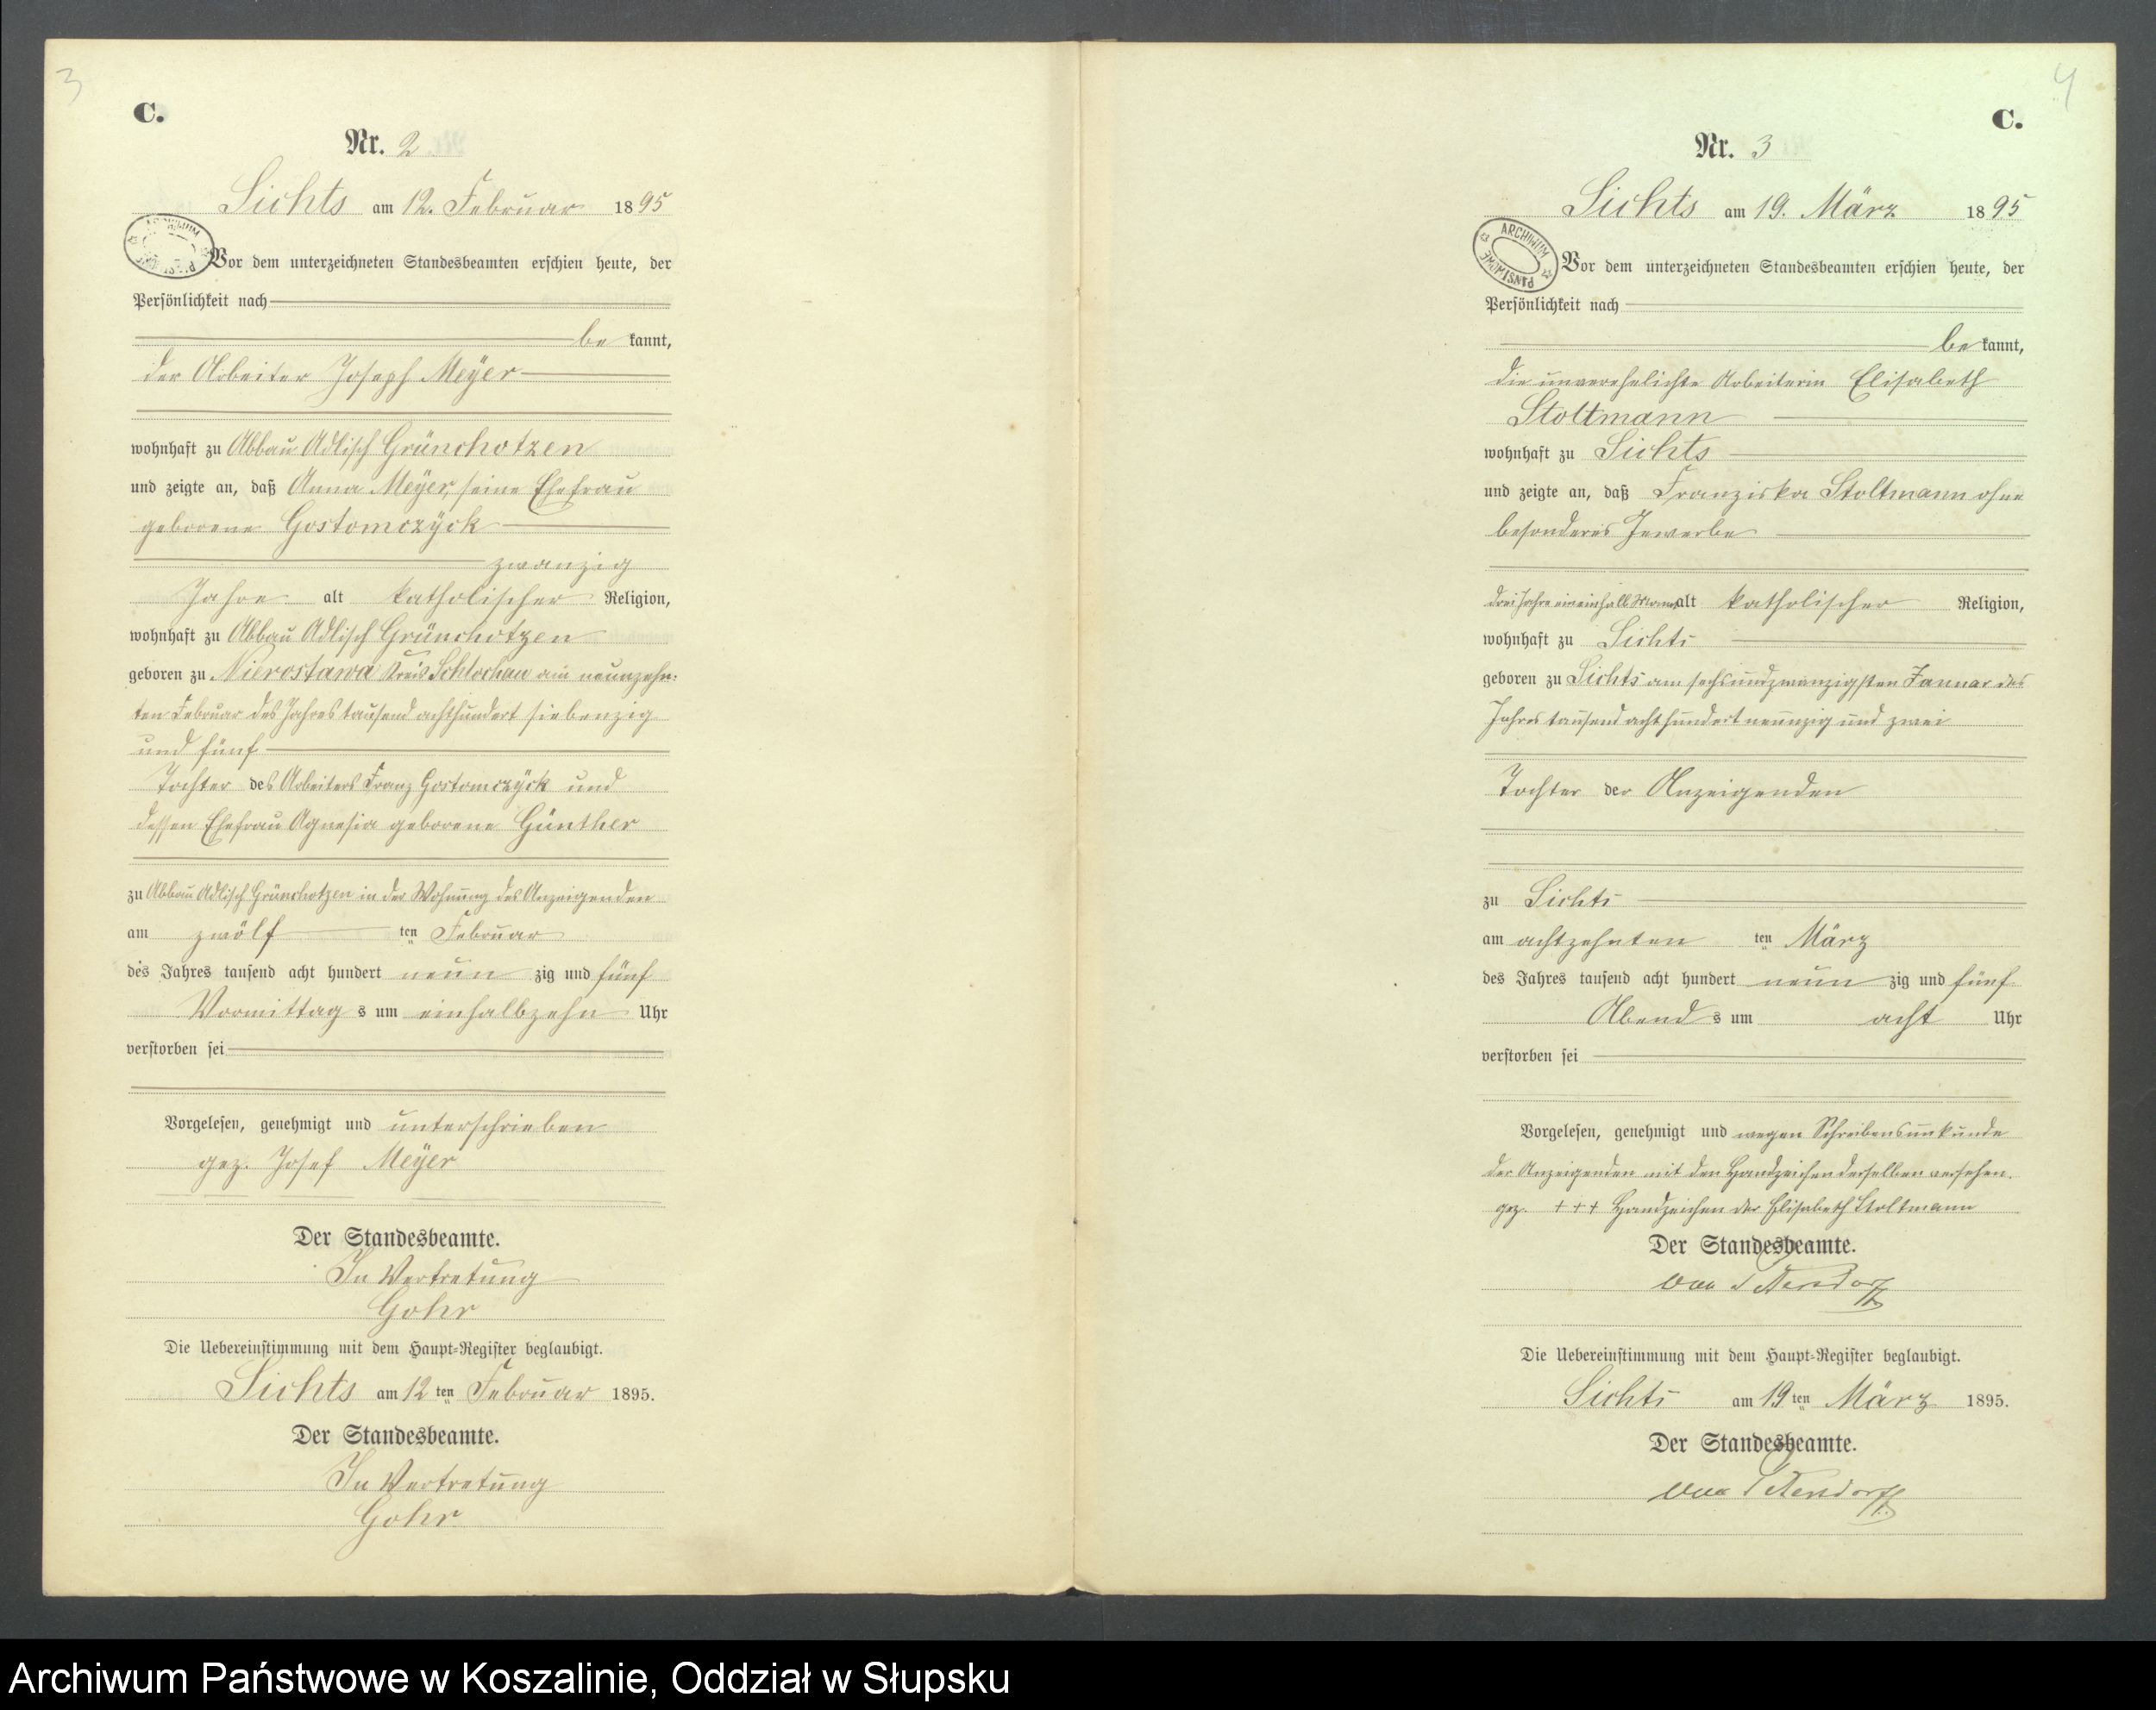 3
C.
Nr. 2
Sichts am 12. Februar 1895
Vor dem unterzeichneten Standesbeamten erschien heute, der
Persönlichkeit nach
be kannt,
der Arbeiter Joseph Meÿer
wohnhaft zu Abbau Adlisch Grünchotzen
und zeigte an, daß Anna Meÿer, seine Ehefrau
geborene Gostomczÿck
zwanzig
Jahre alt katholischer Religion,
wohnhaft zu Abbau Adlisch Grünchotzen
geboren zu Nierostawa Kreis Schlochau am neunzehn-
ten Februar des Jahres tausend achthundert siebenzig
und fünf
Tochter des Arbeiters Franz Gostomczÿck und
dessen Ehefrau Agnesia geborene Günther
zu Abbau Adlisch Grünchotzen in der Wohnung des Anzeigenden
am zwölf ten Februar
des Jahres tausend acht hundert neun zig und fünf
Vormittag s um einhalbzehn Uhr
verstorben sei
Vorgelesen, genehmigt und unterschrieben
gez. Josef Meÿer
Der Standesbeamte.
In Vertretung
Gohr
Die Uebereinstimmung mit dem Haupt-Register beglaubigt.
Sichts am 12 ten Februar 1895.
Der Standesbeamte.
In Vertretung
Gohr
4
C.
Nr. 3
Sichts am 19. März 1895
ARCHIWUM PAŃSTWOWE
Vor dem unterzeichneten Standesbeamten erschien heute, der
Persönlichkeit nach
be kannt,
die unverehelichte Arbeiterin Elisabeth
Stoltmann
wohnhaft zu Sichts
und zeigte an, daß Franziska Stoltmann ohne
besonderes Gewerbe
drei Jahre eineinhalb Monat alt katholischer Religion,
wohnhaft zu Sichts
geboren zu Sichts am sechsundzwanzigsten Januar des
Jahres tausend achthundert neunzig und zwei
Tochter der Anzeigenden
zu Sichts
am achtzehnten ten März
des Jahres tausend acht hundert neun zig und fünf
Abend s um acht Uhr
verstorben sei
Vorgelesen, genehmigt und wegen Schreibensunkunde
der Anzeigenden mit den Handzeichen derselben versehen.
gez. + + + Handzeichen der Elisabeth Stoltmann
Der Standesbeamte.
von
Die Uebereinstimmung mit dem Haupt-Register beglaubigt.
Sichts am 19 ten März 1895.
Der Standesbeamte.
von
Archiwum Państwowe w Koszalinie, Oddział w Słupsku